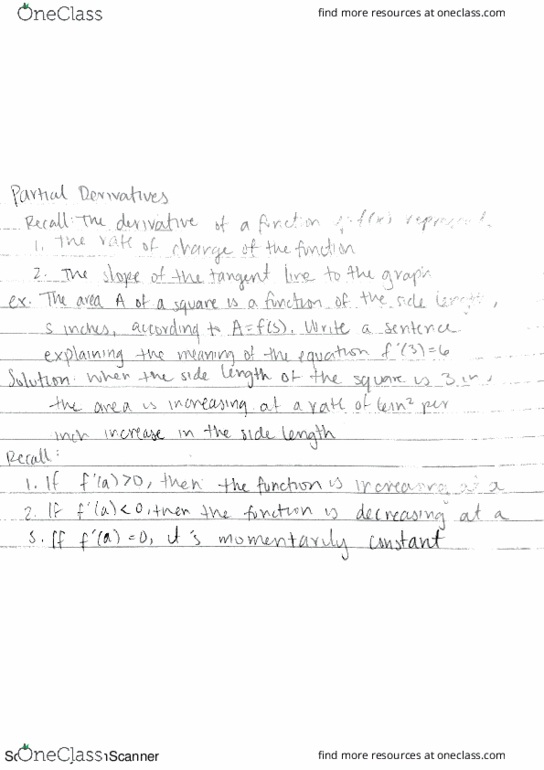 OneClass
find more resources at oneclass.com
Partial Derivatives
Recall: The derivative of a function y=f(x) represents
1. the rate of change of the function
2. The slope of the tangent line to the graph
ex. The area A of a square is a function of the side length,
s inches, according to A=f(s). Write a sentence
explaining the meaning of the equation f'(3)=6
Solution: When the side length of the square is 3 in,
the area is increasing at a rate of 6in² per
inch increase in the side length
Recall:
1. If f'(a)>0, then the function is increasing at a
2. If f'(a)<0, then the function is decreasing at a
3. If f'(a)=0, it's momentarily constant
OneClass Scanner
find more resources at oneclass.com